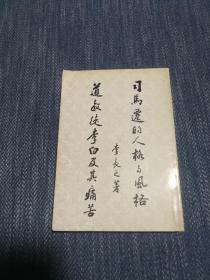 司馬遷的人格与風格
道教徒李白及其痛苦
李長之著